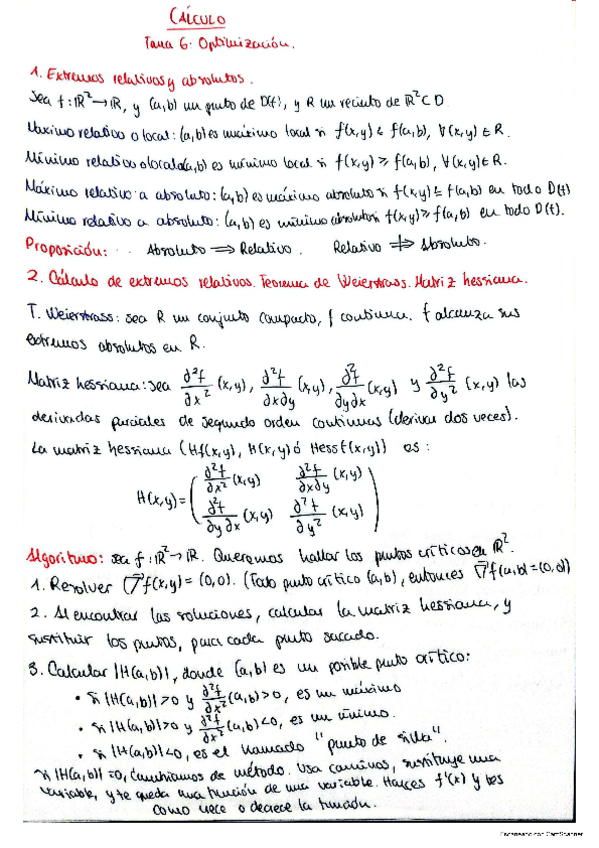 CÁLCULO
Tema 6: Optimización.
1. Extremos relativos y absolutos.
Sea f: ℝ² → ℝ, y (a,b) un punto de D(f), y R un recinto de ℝ² ⊂ D.
Máximo relativo o local: (a,b) es máximo local si f(x,y) ≤ f(a,b), ∀(x,y) ∈ R.
Mínimo relativo o local: (a,b) es mínimo local si f(x,y) ≥ f(a,b), ∀(x,y) ∈ R.
Máximo relativo a absoluto: (a,b) es máximo absoluto si f(x,y) ≤ f(a,b) en todo D(f)
Mínimo relativo a absoluto: (a,b) es mínimo absoluto si f(x,y) ≥ f(a,b) en todo D(f).
Proposición: Absoluto ⟹ Relativo. Relativo ⇏ Absoluto.
2. Cálculo de extremos relativos. Teorema de Weierstrass. Matriz hessiana.
T. Weierstrass: sea R un conjunto compacto, f continua. f alcanza sus
extremos absolutos en R.
Matriz hessiana: sea ∂²f/∂x² (x,y), ∂²f/∂x∂y (x,y), ∂²f/∂y∂x (x,y) y ∂²f/∂y² (x,y) las
derivadas parciales de segundo orden continuas (derivar dos veces).
La matriz hessiana (Hf(x,y), H(x,y) ó Hessf(x,y)) es:
H(x,y) = ( ∂²f/∂x² (x,y) ∂²f/∂x∂y (x,y)
∂²f/∂y∂x (x,y) ∂²f/∂y² (x,y) )
Algoritmo: sea f: ℝ² → ℝ. Queremos hallar los puntos críticos en ℝ².
1. Resolver ∇f(x,y) = (0,0). (Todo punto crítico (a,b), entonces ∇f(a,b) = (0,0))
2. Al encontrar las soluciones, calcular la matriz hessiana, y
sustituir los puntos, para cada punto sacado.
3. Calcular |H(a,b)|, donde (a,b) es un posible punto crítico:
• si |H(a,b)| > 0 y ∂²f/∂x² (a,b) > 0, es un máximo
• si |H(a,b)| > 0 y ∂²f/∂x² (a,b) < 0, es un mínimo.
• si |H(a,b)| < 0, es el llamado "punto de silla".
si |H(a,b)| = 0, cambiamos de método. Usa caminos, sustituye una
variable, y te queda una función de una variable. Haces f'(x) y ves
como crece o decrece la función.
Escaneado con CamScanner